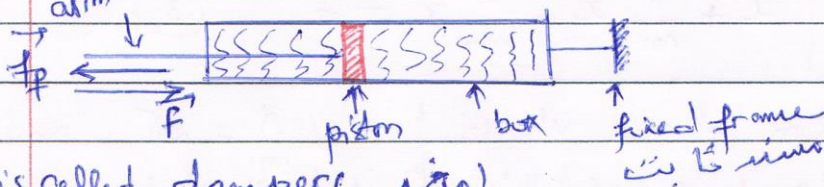 arm
fp
f
piston box fixed frame
is called dampers